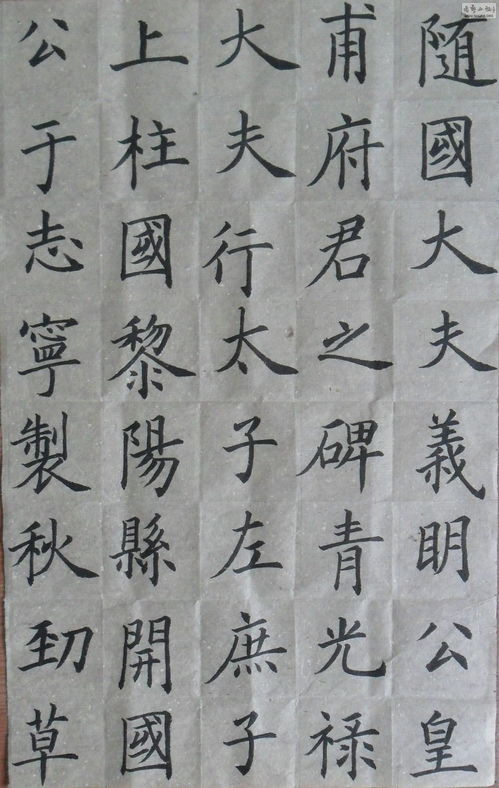 隨國大夫義明公皇
甫府君之碑青光祿
大夫行太子左庶子
上柱國黎陽縣開國
公于志寧製秋勁草